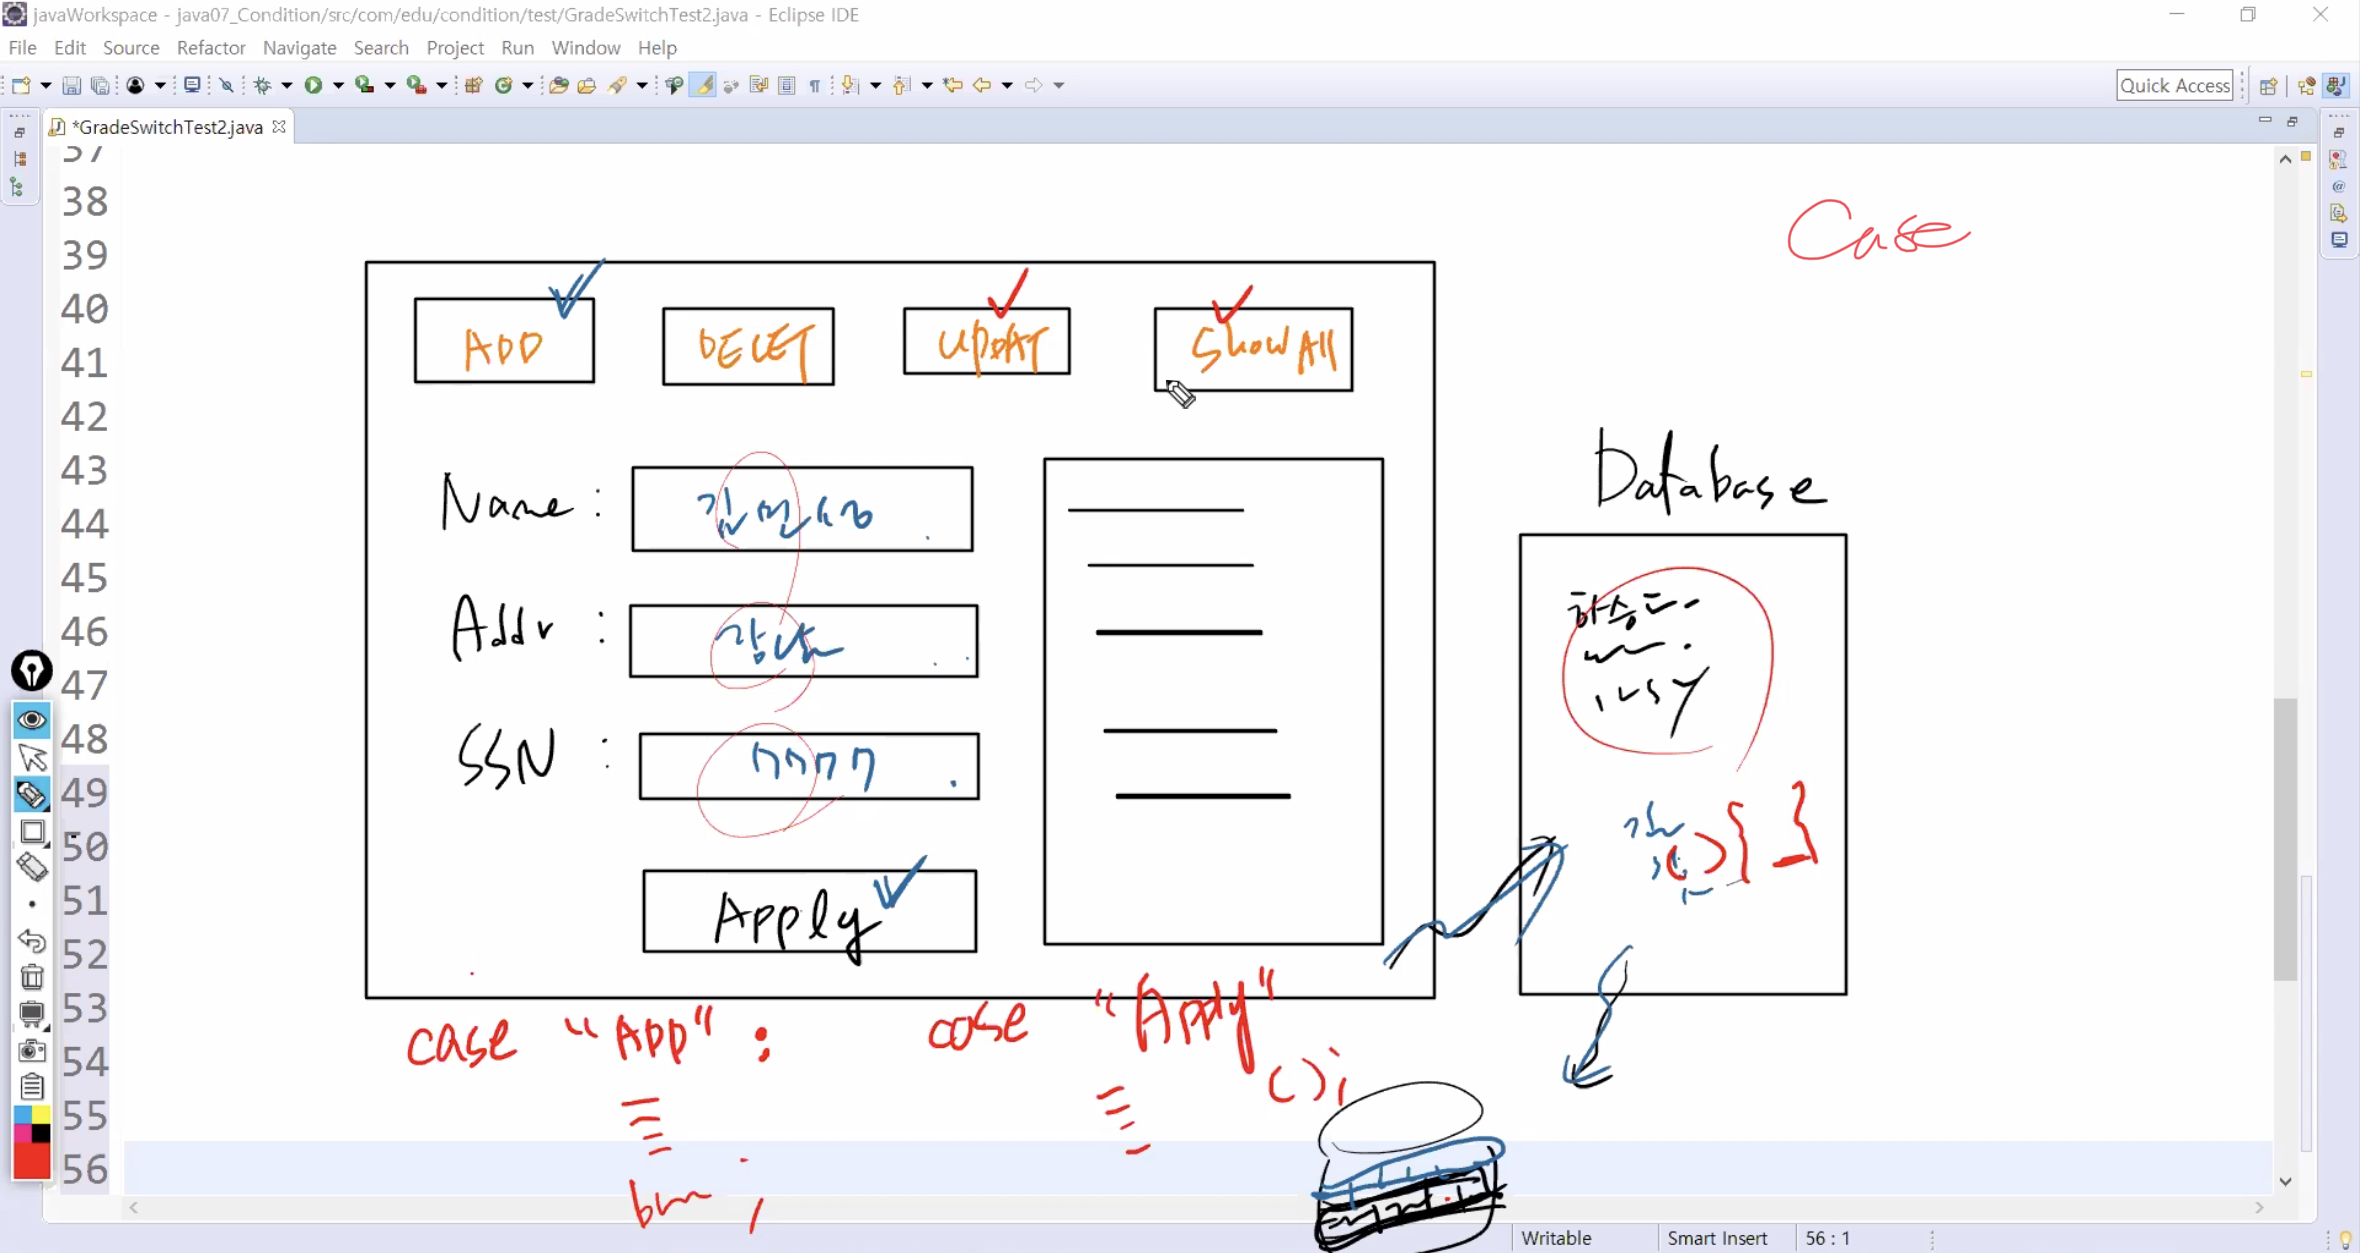 javaWorkspace - java07_Condition/src/com/edu/condition/test/GradeSwitchTest2.java - Eclipse IDE
File Edit Source Refactor Navigate Search Project Run Window Help
Quick Access
*GradeSwitchTest2.java
37
38
39
40
41
42
43
44
45
46
47
48
49
50
51
52
53
54
55
56
Case
ADD DELET UPDAT Show All
Database
Name :
Addr : 강남
SSN :
Apply
case "App" : case "Apply"
( );
Writable Smart Insert 56 : 1